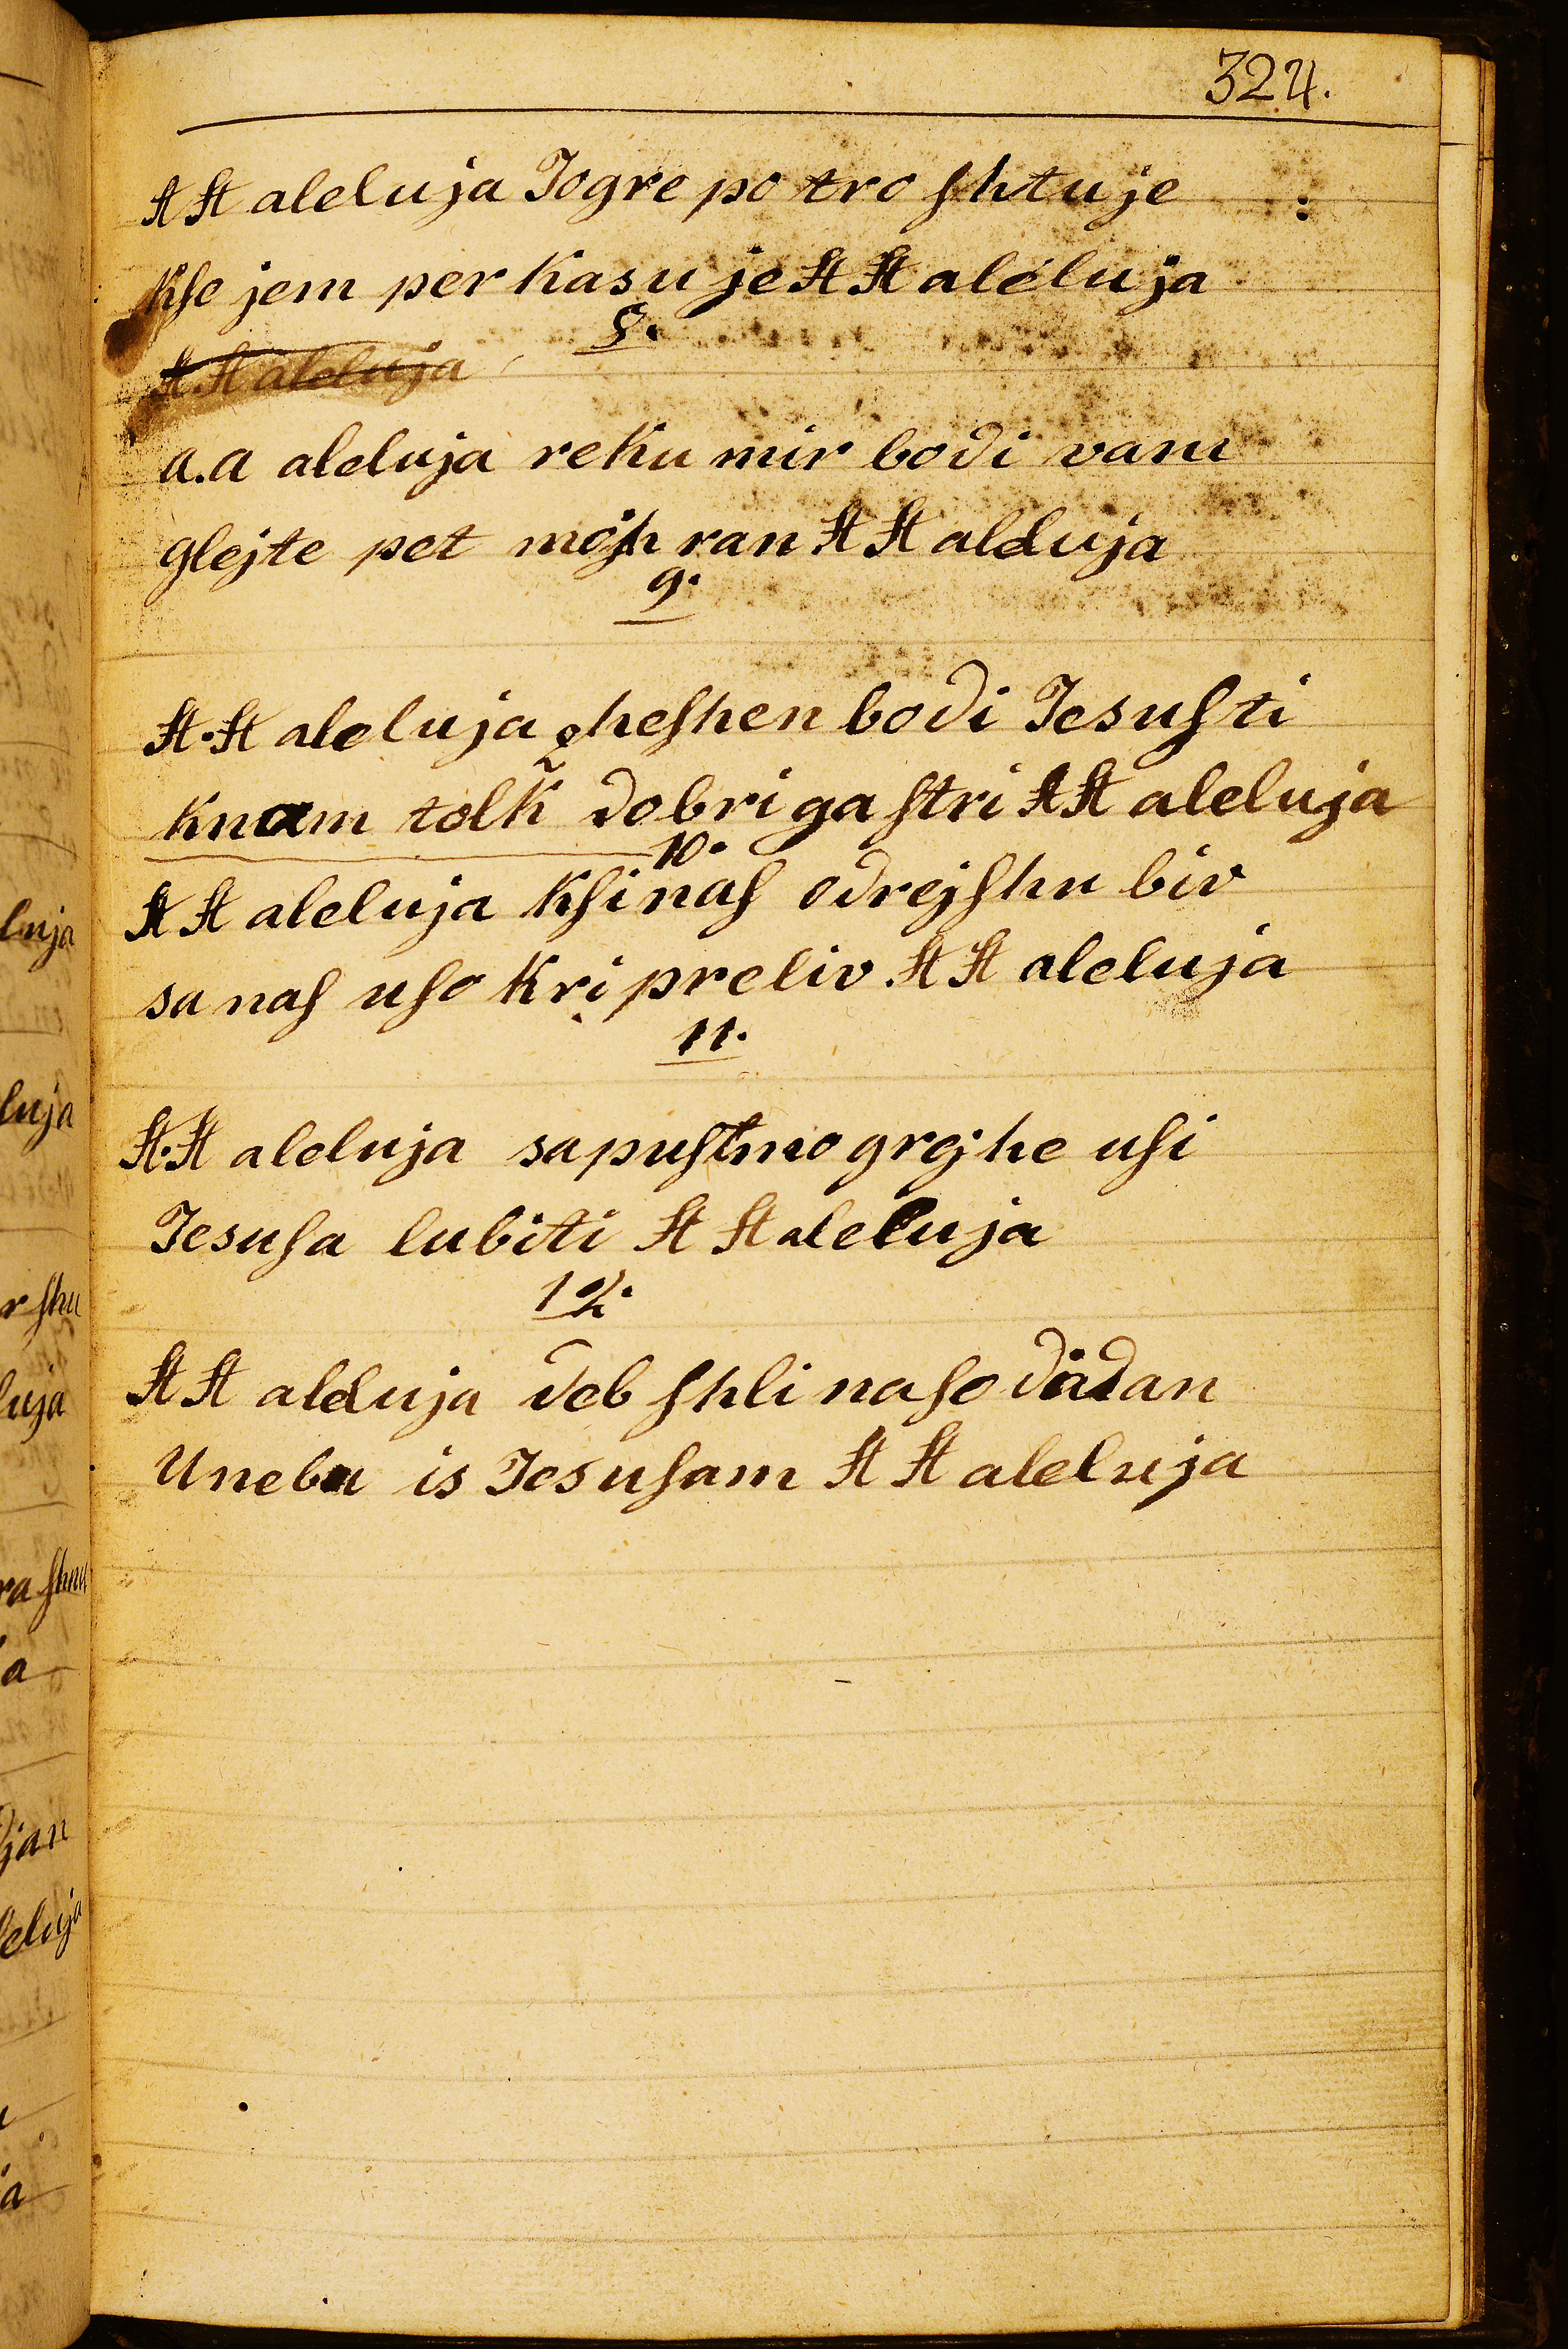 324.
A A aleluja Jogre po tro ſhtuje :
Kſe jem per kasu je A A aleluja
8.
A. A aleluja
a.a aleluja reku mir bodi vam
glejte pet mojh ran A A aleluja
9.
A. A aleluja zheſhen bodi Jesuſ ti
Knam tolk dobri ga ſtri A A aleluja
10.
A A aleluja Kſi naſ odrejſhu biv
sa naſ uſo Kri preliv A A aleluja
11.
A. A aleluja sapuſtmo grejhe uſi
Jesuſa lubiti A A aleluja
12.
A A aleluja deb ſhli na ſodi dan
Unebu is Jesuſam A A aleluja